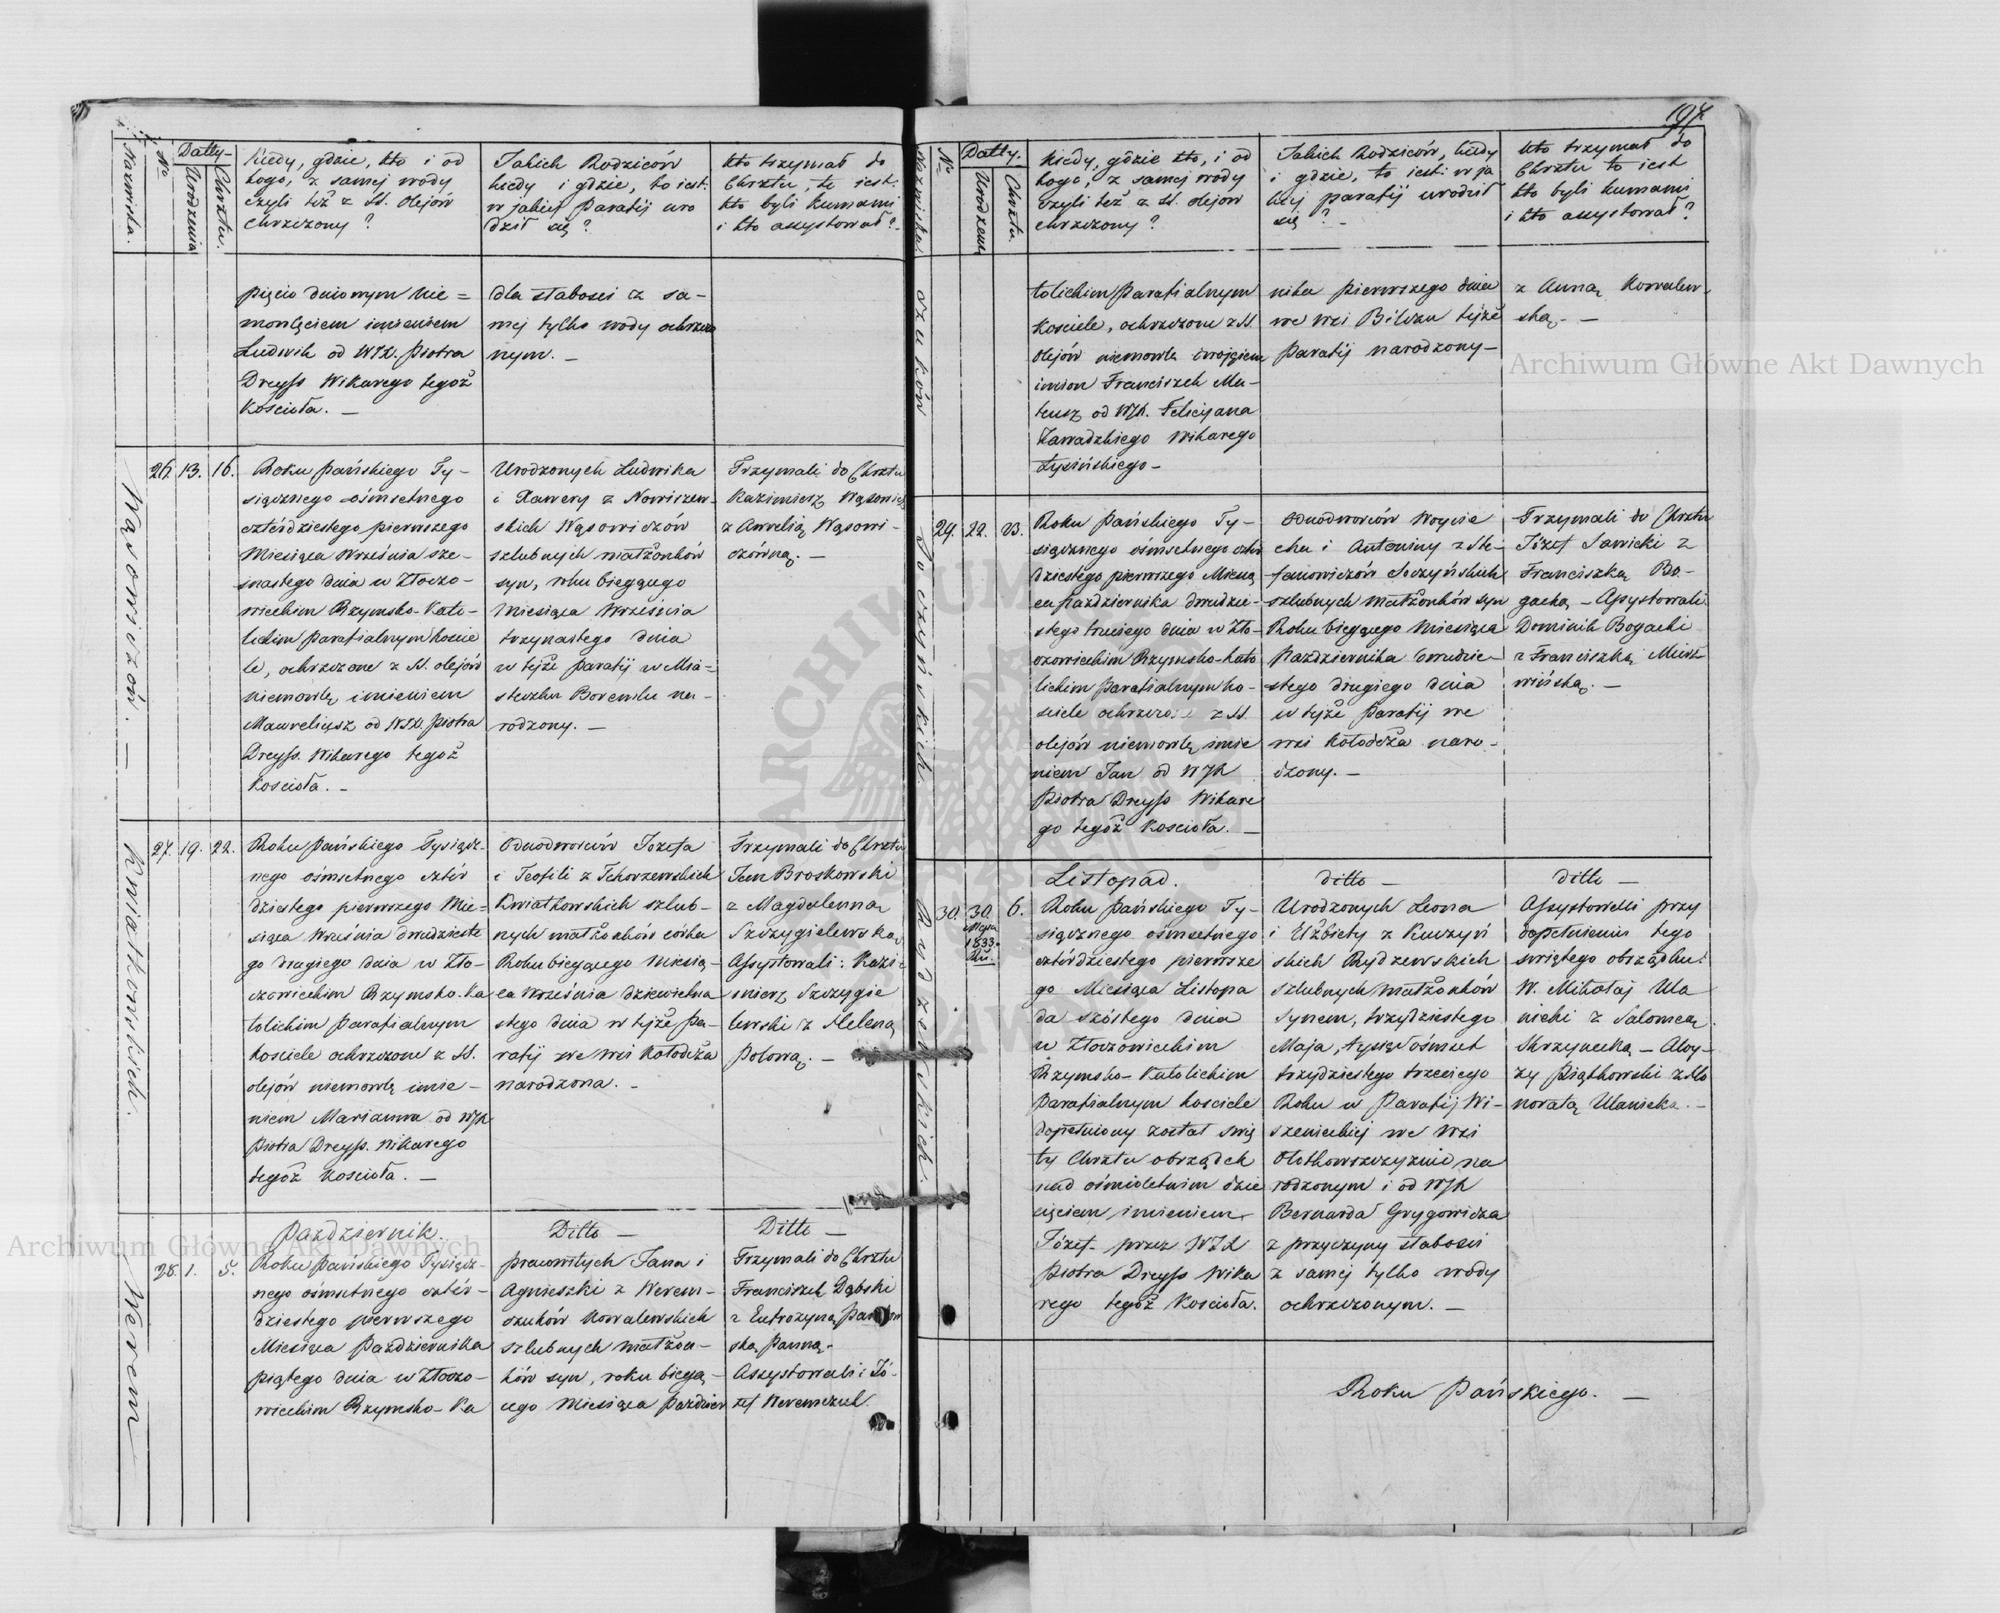 197.
Nazwiska.
No
Datty.
Urodzenia
Chrztu.
Kiedy, gdzie, kto i od
kogo, z samej wody
czyli też z SS. olejów
chrzczony?
Jakich Rodziców
kiedy i gdzie, to iest:
w jakiej Parafij uro
dził się?
Kto trzymał do
Chrztu, to iest:
kto byli kumami
i kto assystował?
pięcio dniowym nie=
mowlęciem imieniem
Ludwik od WJX. Piotra
Dreyss Wikarego tegoż
Kościoła. —
dla słabości z sa-
mej tylko wody ochrzczo
nym. —
Wąsowiczów. —
26.
13.
16.
Roku Pańskiego Ty-
siącznego ośmsetnego
czterdziestego pierwszego
Miesiąca Września sze-
snastego dnia w Złoczo-
wieckim Rzymsko-Kato-
lickim Parafialnym Koście
le, ochrzczone z SS. olejów
niemowlę imieniem
Maureliusz od WJX. Piotra
Dreyss. Wikarego tegoż
Kościoła. —
Urodzonych Ludwika
i Xawery z Nowiszew-
skich Wąsowiczów
szlubnych małżonków
syn, roku biegącego
Miesiąca Września
trzynastego dnia
w tejże Parafij w Mia-
steczku Boremlu na-
rodzony. —
Trzymali do Chrztu
Kazimierz Wąsowicz
z Aurelią Wąsowi-
czówną. —
Kwiatkowskich.
27.
19.
22.
Roku Pańskiego Tysiącz-
nego ośmsetnego czter
dziestego pierwszego Mie-
siąca Września dwudzieste
go drugiego dnia w Zło-
czowieckim Rzymsko-Ka
tolickim Parafialnym
kościele ochrzczone z SS.
olejów niemowlę imie-
niem Marianna od WJX
Piotra Dreyss. Wikarego
tegoż Kościoła. —
Odnodworców Jozefa
i Teofili z Tchorzewskich
Kwiatkowskich szlub-
nych małżonków córka
Roku biegącego Miesią-
ca Września dziewietna
stego dnia w tejże Pa-
rafij we wsi Kołodeża
narodzona. —
Trzymali do Chrztu
Jan Broskowski
z Magdalenną
Szczygielewską
Assystowali: Kazi-
mierz Szczygie
lewski z Heleną
Polową. —
Werem
Październik.
28.
1.
5.
Roku Pańskiego Tysiącz-
nego ośmsetnego czter-
dziestego pierwszego
Miesiąca Października
piątego dnia w Złoczo-
wieckim Rzymsko-Ka
Ditto —
pracowitych Jana i
Agnieszki z Werem-
szuków Kowalewskich
szlubnych małżon-
ków syn, roku biegą-
cego Miesiąca Paździer
Ditto —
Trzymali do Chrztu
Franciszek Dąbski
z Eufrozyną
ską Panną.
Assystowali: Jó-
zef Weremczuk
Nazwiska
No
Datty.
Urodzenia
Chrztu.
Kiedy, gdzie kto, i od
kogo, z samej wody
czyli też z SS. olejów
chrzczony?
Jakich Rodziców, kiedy
i gdzie, to iest: w ja
kiej parafij urodził
się? —
Kto trzymał do
Chrztu to iest
kto byli kumami
i kto assystował?
szuków
tolickim Parafialnym
Kościele, ochrzczone z SS.
olejów niemowlę dwojgiem
imion Franciszek Ma-
teusz od WJX. Felicyana
Zawadzkiego Wikarego
Łysińskiego —
nika pierwszego dnia
we wsi Bilczu tejże
Parafij narodzony —
z Anną Kowalew-
ską. —
Soczyńskich.
29.
22.
23.
Roku Pańskiego Ty-
siącznego ośmsetnego czter
dziestego pierwszego Miesią
ca Października dwudzie-
stego trzeciego dnia w Zło-
czowieckim Rzymsko-Kato
lickim Parafialnym ko-
ściele ochrzczone z SS.
olejów niemowlę imie
niem Jan od WJX
Piotra Dreyss Wikare
go tegoż Kościoła. —
Odnodworców Woycie
cha i Antoniny z Ste-
fanowiczów Soczyńskich
szlubnych małżonków syn
Roku biegącego Miesiąca
Października dwudzie-
stego drugiego dnia
w tejże Parafij we
wsi Kołodeża naro-
dzony. —
Trzymali do Chrztu
Józef Sawicki z
Franciszką Bo-
gacką — Assystowali
Dominik Bogacki
z Franciszką
wińską. —
Rudzewskich.
Listopad.
30.
30.
Maja
1833.
Ru.
6.
Roku Pańskiego Ty-
siącznego ośmsetnego
czterdziestego pierwsze
go Miesiąca Listopa
da szóstego dnia
w Złoczowieckim
Rzymsko-Katolickim
Parafialnym kościele
dopełniony został świę
ty Chrztu obrządek
nad ośmioletnim dzie
cięciem imieniem
Józef. przez WJX
Piotra Dreyss Wika
rego tegoż Kościoła.
ditto —
Urodzonych Leona
i Elżbiety z Kuczyń
skich Rydzewskich
szlubnych małżonków
Synem, trzydziestego
Maja, tysiąc ośmset
trzydziestego trzeciego
Roku w Parafij Wi-
szenieckiej we Wsi
na
rodzonym i od WJX
Bernarda Grygowicza
z przyczyny słabości
z samej tylko wody
ochrzczonym. —
ditto —
Assystowali przy
dopełnieniu tego
świętego obrządku:
W. Mikołaj Ula
nicki z Salomeą
Skrzynecką — Aloy-
zy Piątkowski z Ho
noratą Ulanicką. —
Roku Pańskiego. —
Archiwum Główne Akt Dawnych
Archiwum Główne Akt Dawnych